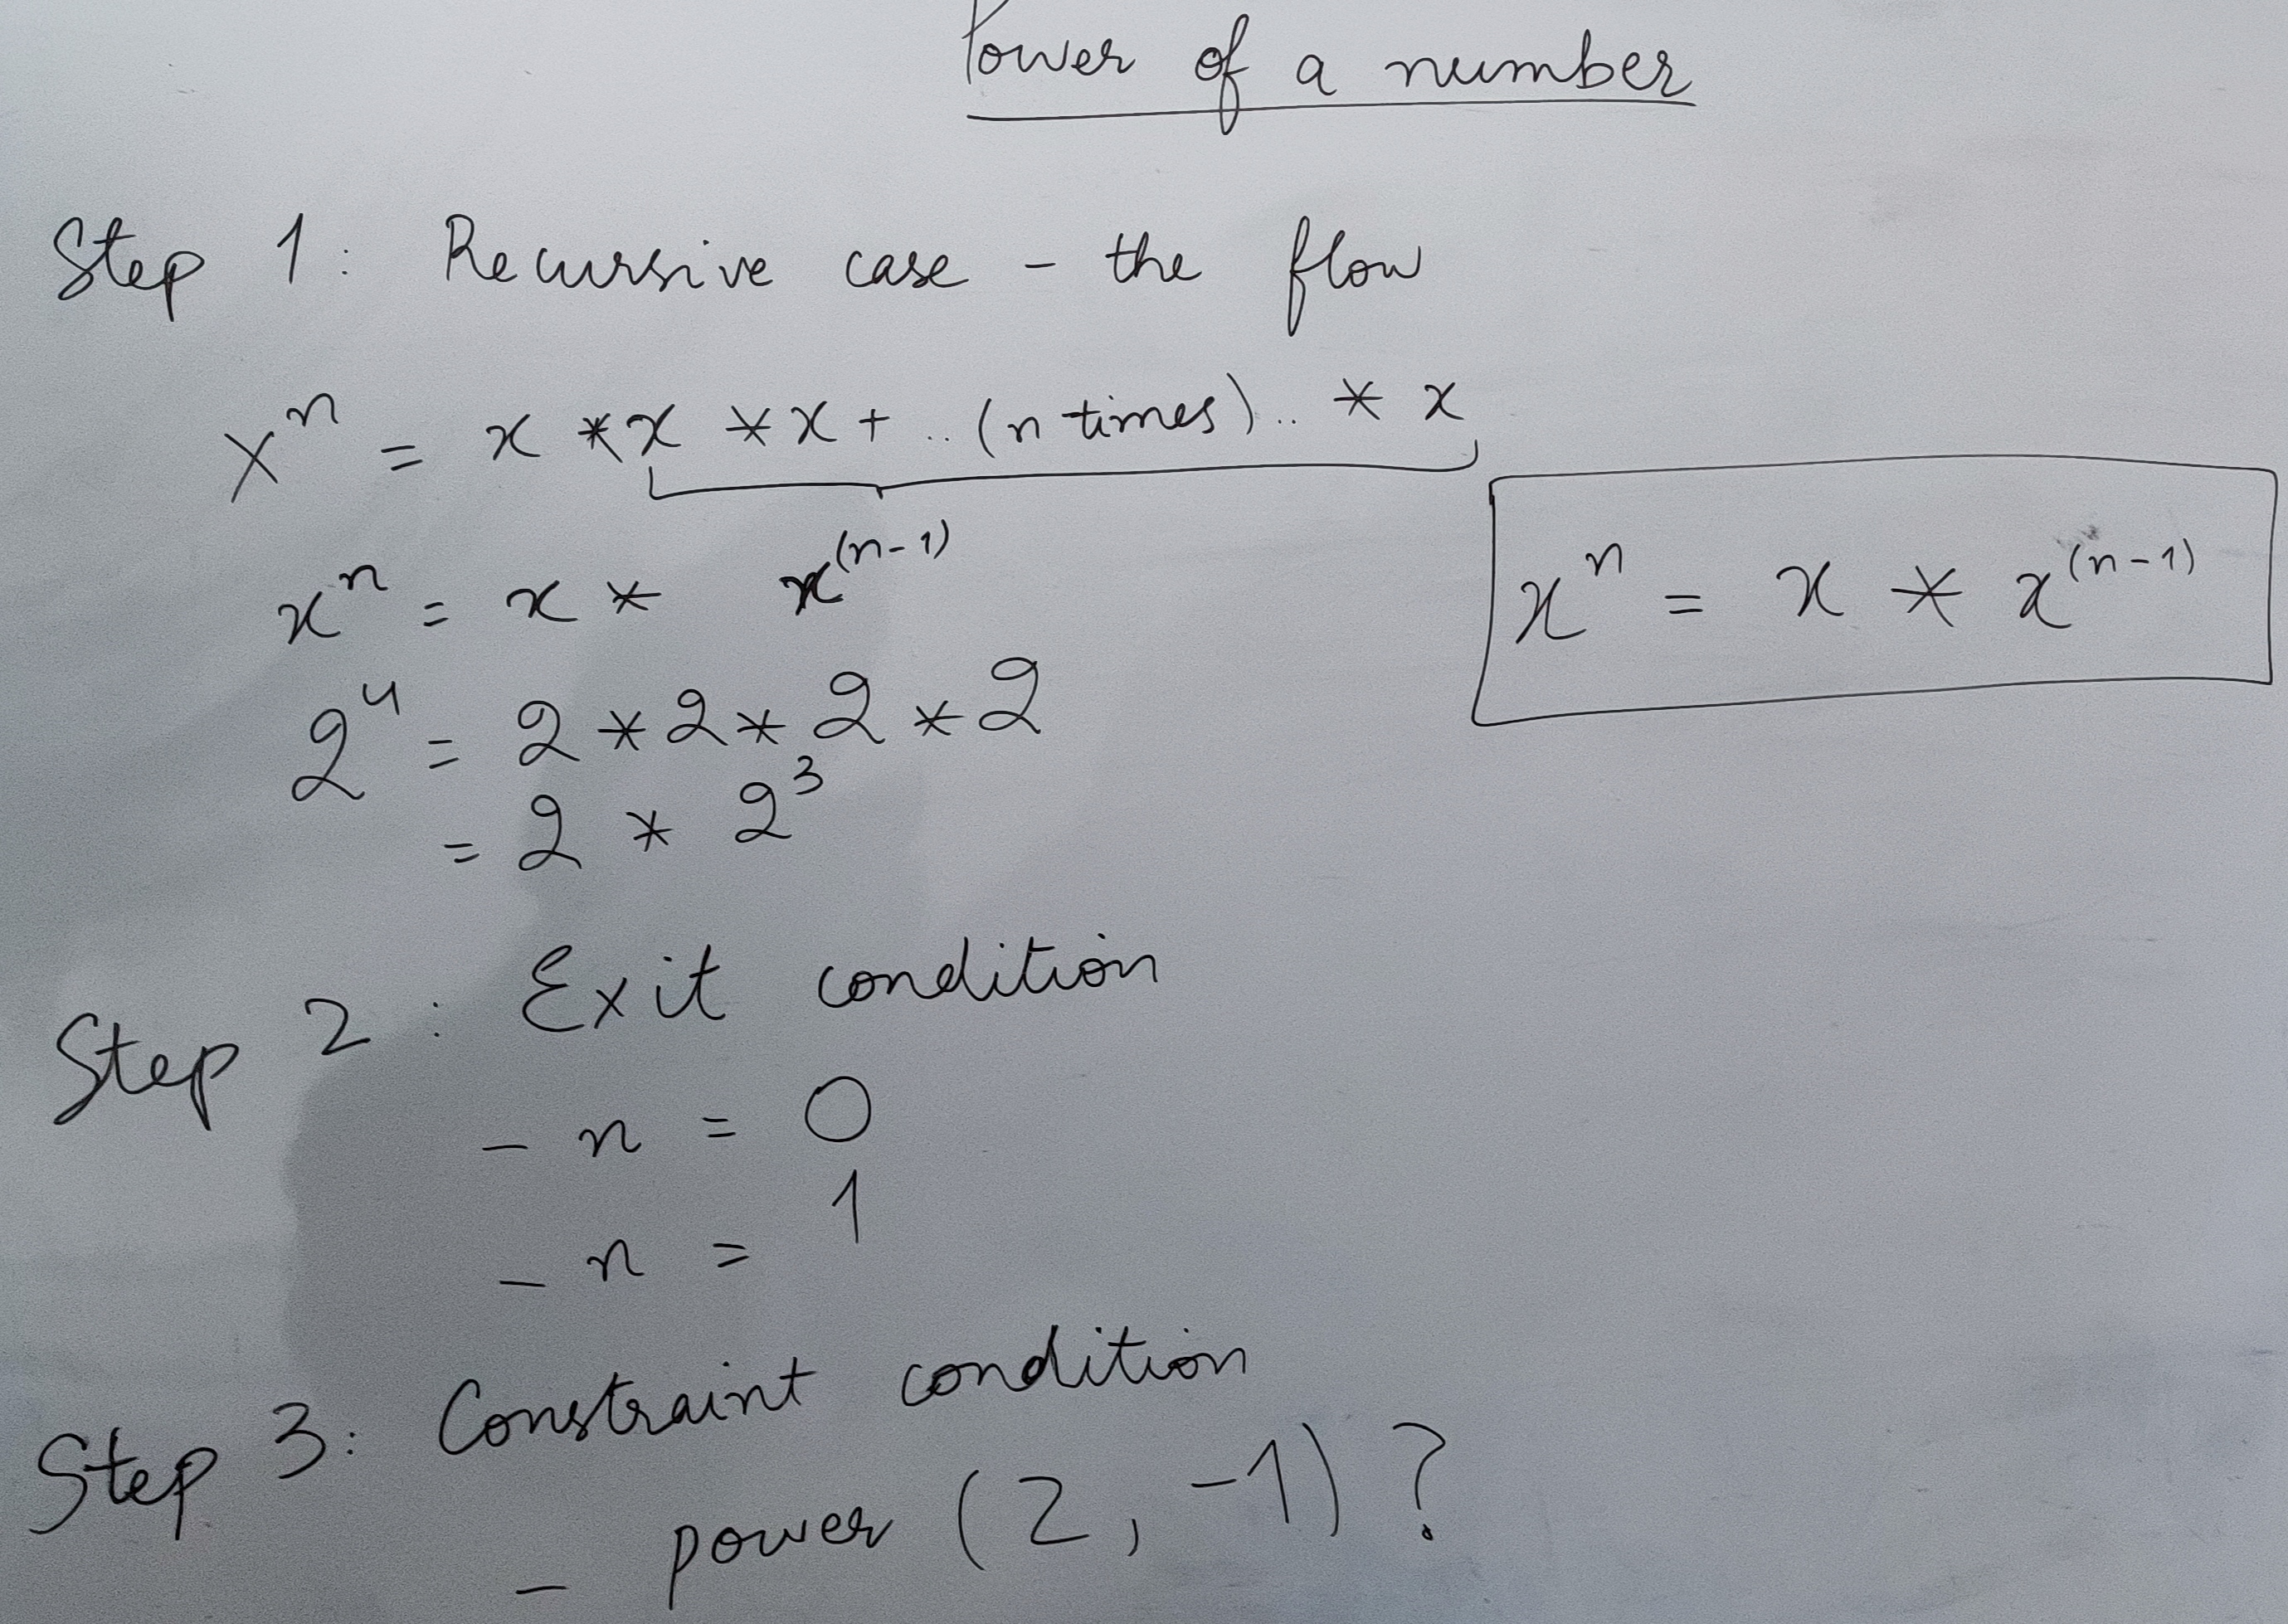 Power of a number
Step 1: Recursive case - the flow
xⁿ = x * x * x + .. (n times) .. * x
xⁿ = x * x⁽ⁿ⁻¹⁾
xⁿ = x * x⁽ⁿ⁻¹⁾
2⁴ = 2 * 2 * 2 * 2
= 2 * 2³
Step 2: Exit condition
- n = 0
- n = 1
Step 3: Constraint condition
- power (2, -1) ?